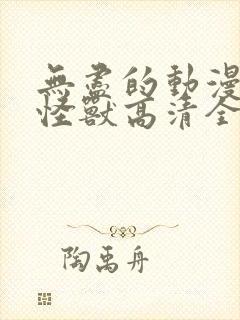 無盡的動漫
怪獸高清全
陶禹舟